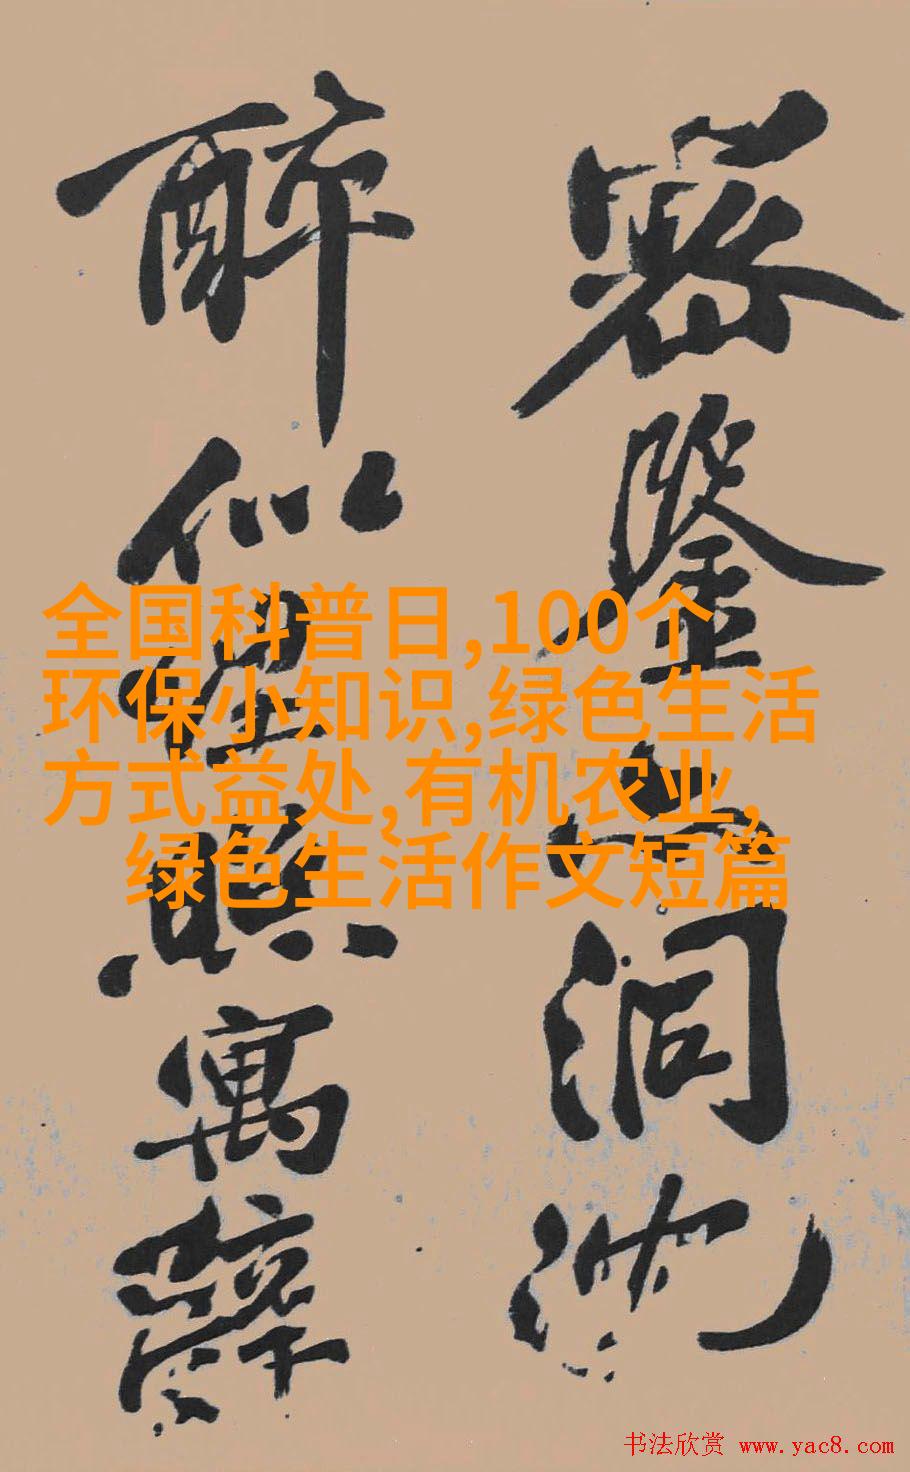 密鑒亦洞沈
醉似埋照寓辭
全国科普日,100个
环保小知识,绿色生活
方式益处,有机农业,
绿色生活作文短篇
书法欣赏 www.yac8.com